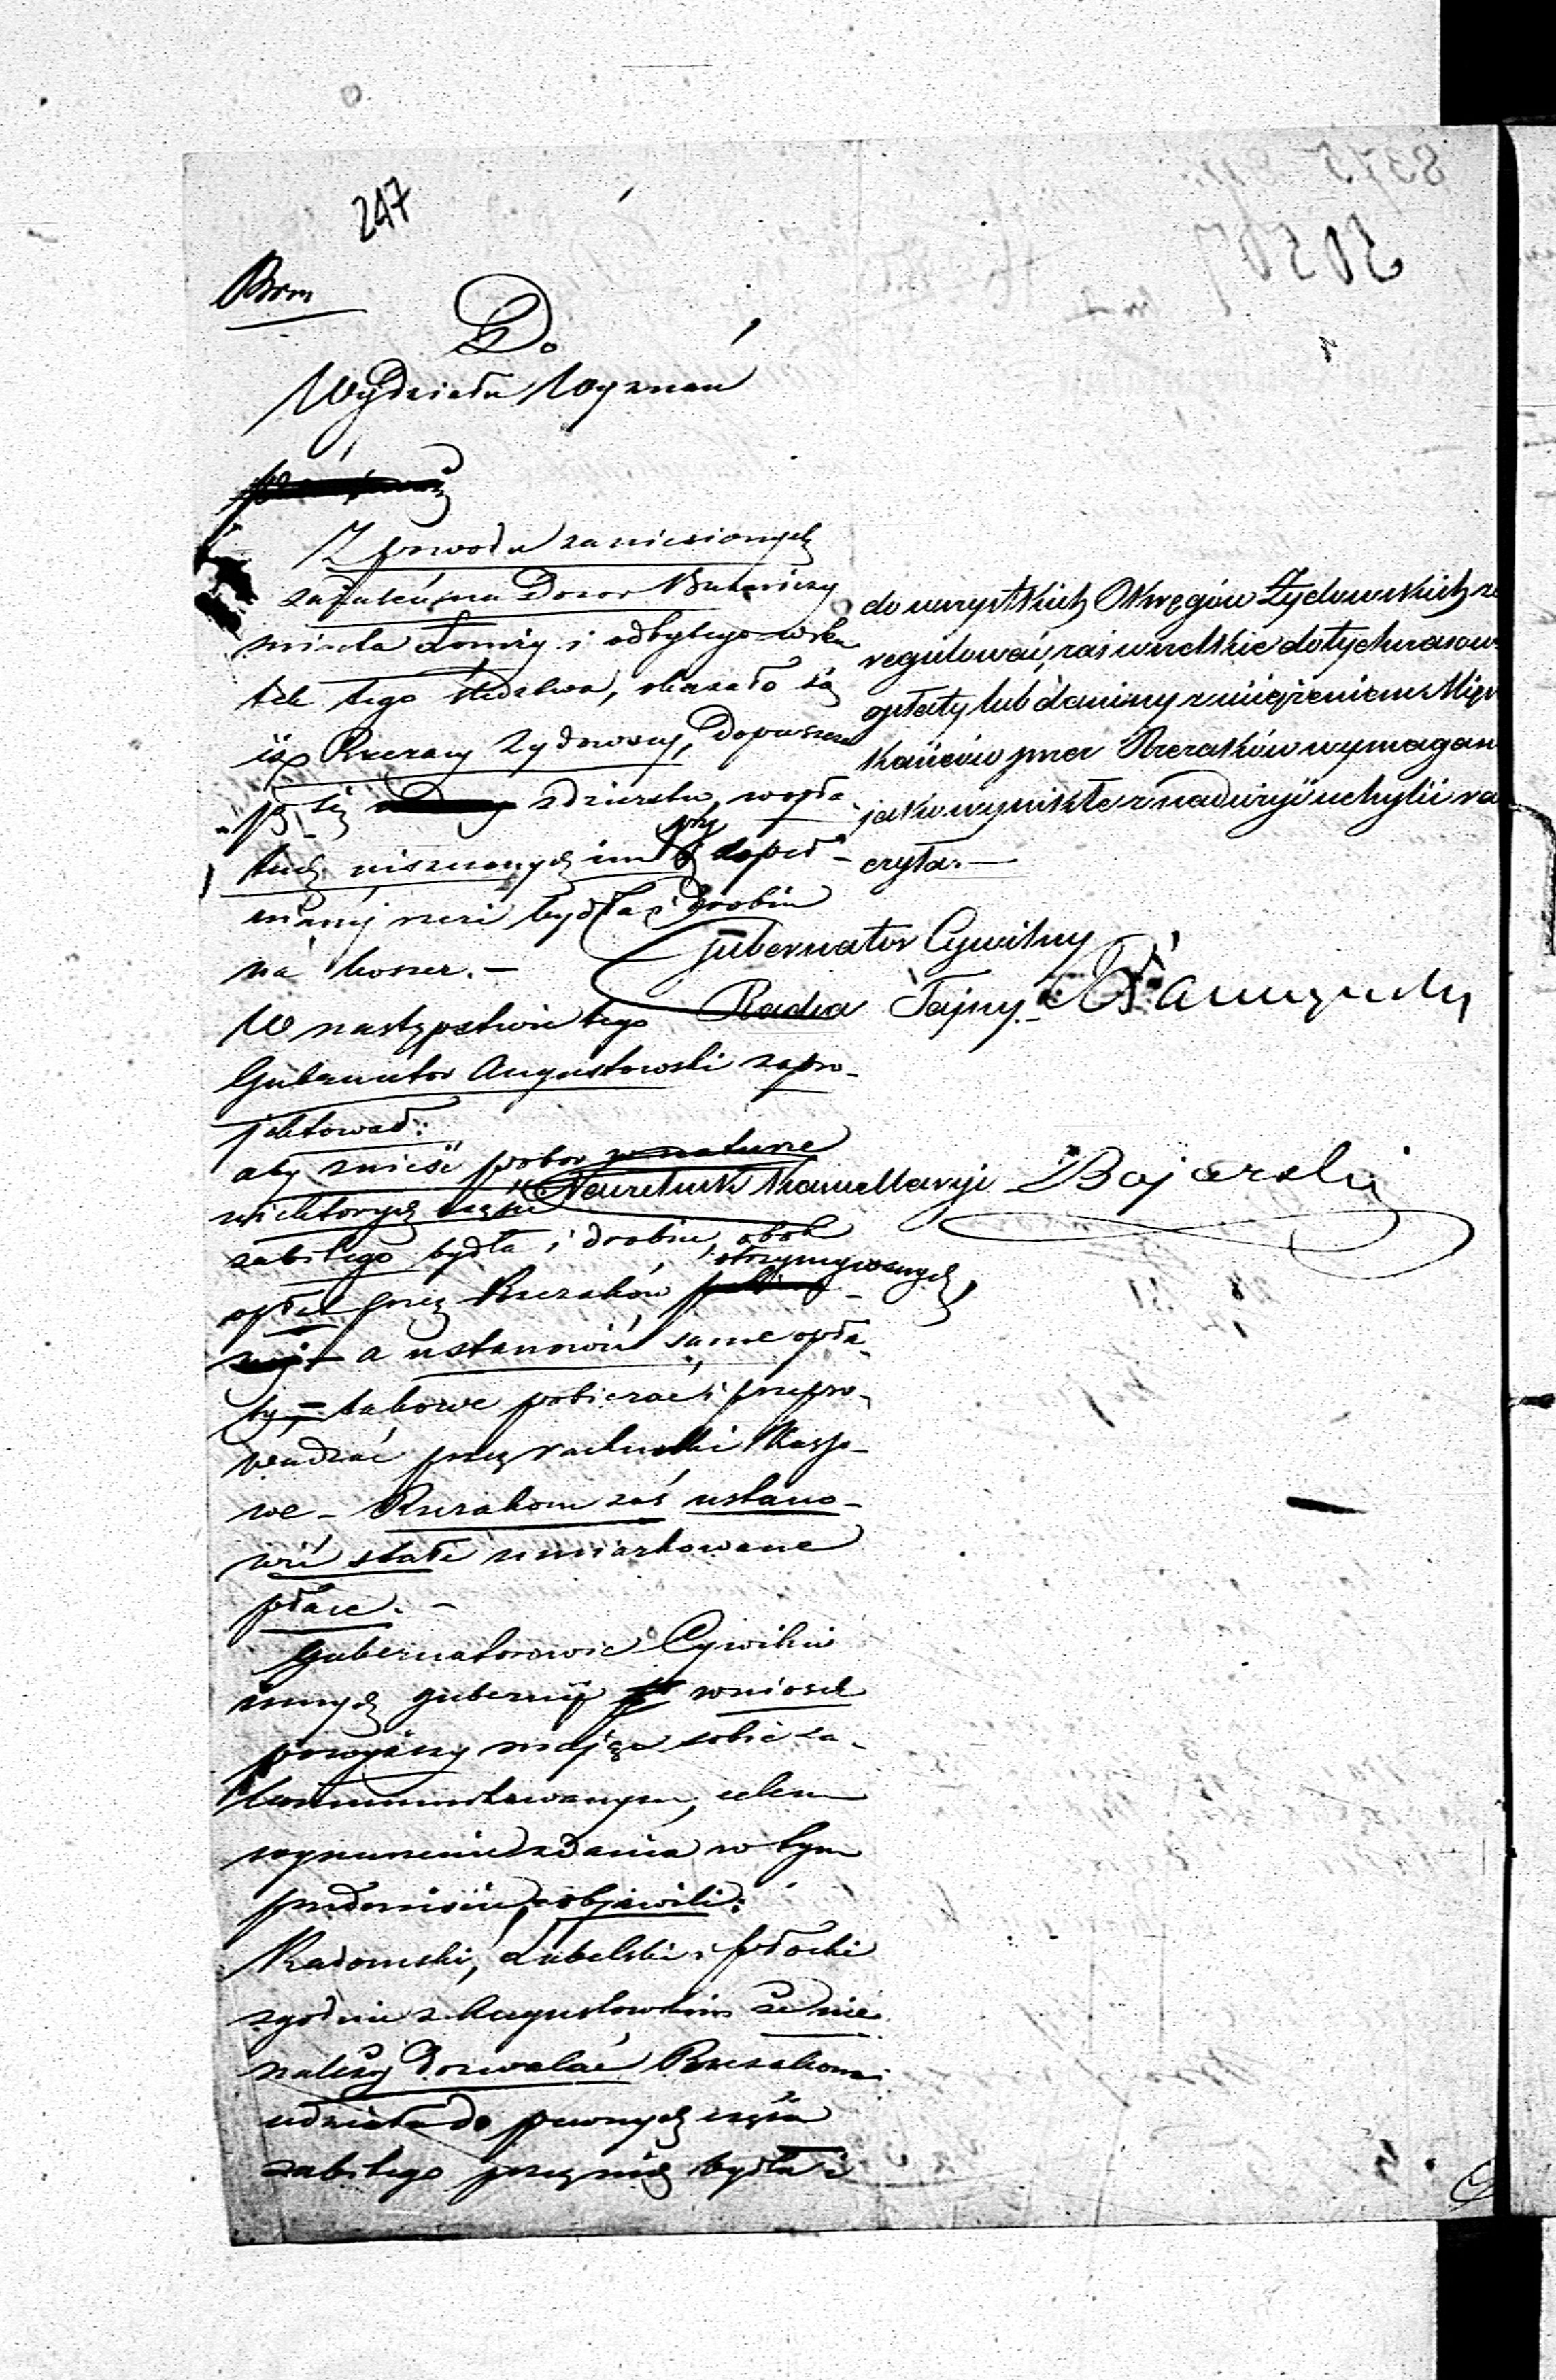 247
Do
Wydziału Wyznań
Z powodu zaniesionych
zażaleń, na Dozor Bożniczy
miasta Łomży i odbytego w sku
tek tego śledztwa, okazało się
iż Rzezacy Żydowscy, dopuszcza
ją się zdzierstw, w opła
tach uiszczanych im przy dopeł-
nianej rzezi bydła i drobiu
na koszer.—
W następstwie tego
Gubernator Augustowski zapro-
jektował:
aby znieść pobor w naturze
niektorych części
zabitego bydła i drobiu, obok
opłat przez Rzezaków otrzymywanych,
a ustanowić same opła
ty, takowe pobierać i przepro-
wadzać przez rachunki Kasso-
we – Rzezakom zaś ustano-
wić stałe umiarkowane
płace.—
Gubernatorowie Cywilni
innych gubernij wniosek
powyższy mając sobie za-
kommunikowanym, celem
wynurzenia zdania w tym
przedmiocie, objawili:
Radomski, Lubelski i Płocki
zgodnie z Augustowskim że nie
należy dozwalać Rzezakom
udziału do pewnych części
zabitego przez nich bydła i
do wszystkich Okręgów Żydowskich za
regulować, zaś wszelkie dotychczasow
opłaty lub daniny z uciążeniem Miesz
kańców przez Rzezaków wymagan
jako wynikłe z nadużyć uchylić ra
czyła.—
Gubernator Cywilny
Radca Tajny
Naczelnik Kancellaryi Bajerski